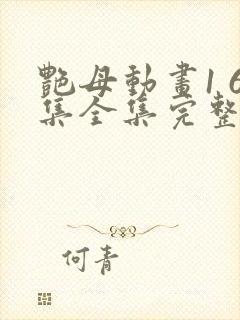 艷母動畫1 6
集全集完整
何青